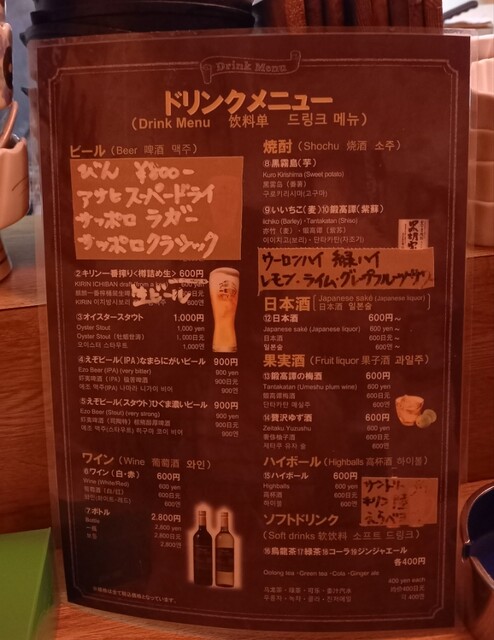 Drink Menu
ドリンクメニュー
(Drink Menu 饮料单 드링크 메뉴)
ビール (Beer 啤酒 맥주)
びん ¥800-
アサヒ スーパードライ
サッポロ ラガー
サッポロ クラシック
②キリン一番搾り<樽詰め生> 600円
KIRIN ICHIBAN
生ビール
③オイスタースタウト 1,000円
Oyster Stout 1,000 yen
1,000日元
오이스터 스타우트 1,000엔
④えぞビール(IPA)なまらにがいビール 900円
Ezo Beer (IPA) (very bitter) 900 yen
900日元
900엔
⑤えぞビール(スタウト)ひぐま濃いビール 900円
Ezo Beer (Stout) (very strong) 900 yen
900日元
900엔
ワイン (Wine 葡萄酒 와인)
⑥ワイン(白・赤) 600円
Wine (White/Red) 600 yen
葡萄酒 (白/红) 600日元
600엔
⑦ボトル 2,800円
Bottle 2,800 yen
一瓶 2,800日元
2,800엔
焼酎 (Shochu 烧酒 소주)
⑧黒霧島(芋)
Kuro Kirishima (Sweet potato)
黑雾岛 (番薯)
구로키리시마(고구마)
⑨いいちこ(麦)⑩鍛高譚(紫蘇)
Iichiko (Barley)・Tantakatan (Shiso)
이이치고(보리)・단타카탄(차조기)
ウーロンハイ 緑ハイ
レモン・ライム・グレープフルーツサワー
日本酒 (Japanese saké (Japanese liquor) 日本酒 일본술)
⑫日本酒 600円~
Japanese saké (Japanese liquor) 600 yen~
日本酒 600日元~
일본술 600엔~
果実酒 (Fruit liquor 果子酒 과일주)
⑬鍛高譚の梅酒 600円
Tantakatan (Umeshu plum wine) 600 yen
600日元
600엔
⑭贅沢ゆず酒 600円
Zeitaku Yuzushu 600 yen
600日元
600엔
ハイボール (Highballs 高杯酒 하이볼)
⑮ハイボール 600円
Highballs 600 yen
高杯酒 600日元
하이볼 600엔
サントリー
キリン 陸
ソフトドリンク
(Soft drinks 软饮料 소프트 드링크)
⑯烏龍茶⑰緑茶⑱コーラ⑲ジンジャエール
各400円
Oolong tea・Green tea・Cola・Ginger ale
400 yen each
우롱차・녹차・콜라・진저에일 각 400엔